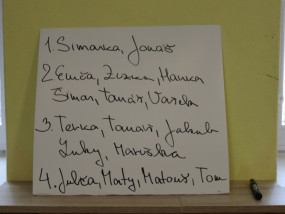 1. Simarka, Jonáš
2. Emča, Zuzka, Hanka
Šimon, Tomáš, Vašek
3. Terka, Tomáš, Jakub
Luky, Mariška
4. Julča, Maty, Matouš, Tom